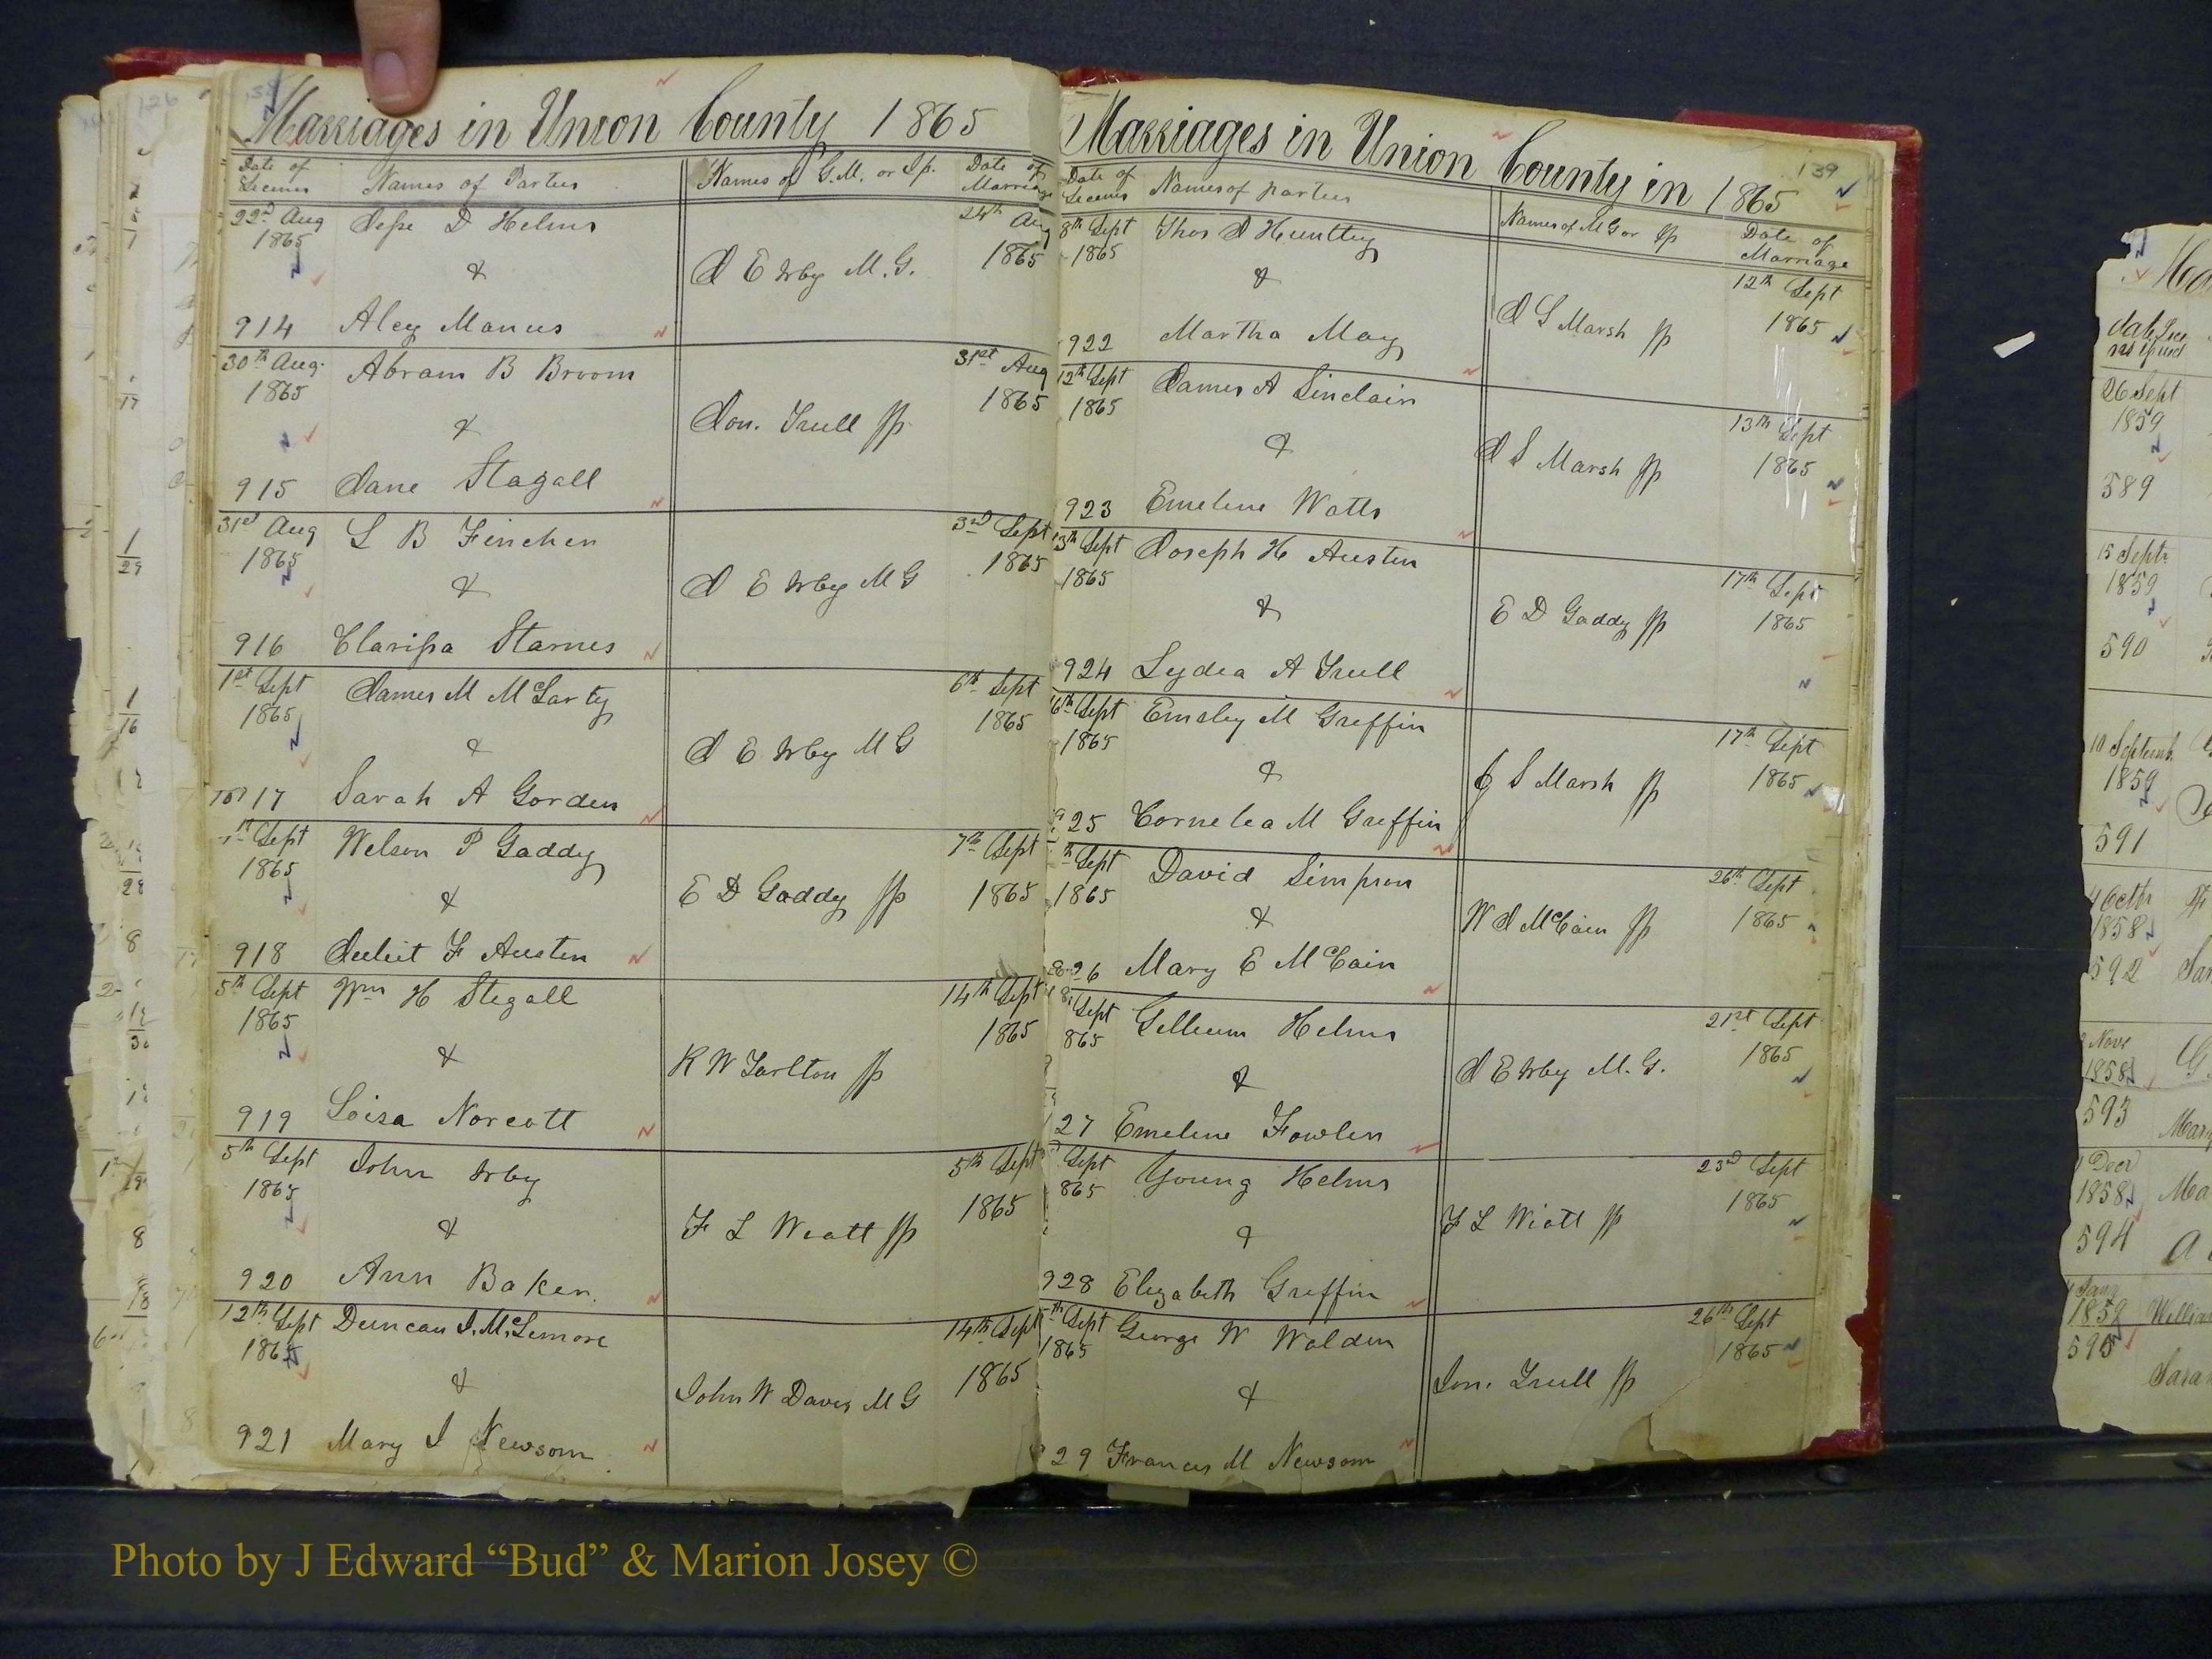 Marriages in Union County 1865
Date of Names of Parties Names of G.M. or Jp. Date of
Licenes Marriage
22d Aug Jesse D Helms 24th Aug
1865 & J E Irby M.G. 1865
914 Aley Manus
30th Aug. Abram B Broom 31st Aug
1865 & Jon. Trull Jp. 1865
915 Jane Stagall
31st Aug L B Fincher 3rd Sept
1865 & J E Irby M G 1865
916 Clarissa Starnes
1st Sept James M McLarty 6th Sept
1865 & J E Irby M G 1865
17 Sarah A Gorden
Sept Welson P Gaddy 7th Sept
1865 & E D Gaddy Jp 1865
918 Juliet F Austin
5th Sept Wm H Stegall 14th Sept
1865 & K W Tarlton Jp 1865
919 Loisa Norcott
5th Sept John Irby 5th Sept
1865 & F L Wiatt Jp 1865
920 Ann Baker
12th Sept Duncan J. McLemore 14th Sept
1865 & John W Davis M G 1865
921 Mary J Newsom
139
Marriages in Union County in 1865
Date of Names of parties Names of M G or Jp Date of
Licenes Marriage
8th Sept Thos J Huntley 12th Sept
1865 & J S Marsh Jp 1865
922 Martha May
12th Sept James A Sinclair 13th Sept
1865 & J S Marsh Jp 1865
923 Emeline Watts
13th Sept Joseph H Austin 17th Sept
1865 & E D Gaddy Jp 1865
924 Lydia A Trull
16th Sept Emsley M Griffin 17th Sept
1865 & J S Marsh Jp 1865
925 Cornelia M Griffin
th Sept David Simpson 26th Sept
1865 & W J McCain Jp 1865
26 Mary E McCain
Sept Gillium Helms 21st Sept
865 & J E Irby M.G. 1865
27 Emeline Fowler
Sept Young Helms 23rd Sept
865 & F L Wiatt Jp 1865
928 Elizabeth Griffin
th Sept George W Walden 26th Sept
1865 & Jon. Trull Jp 1865
29 Frances M Newsom
26 Sept
1859
589
15 Septr
1859
590
10 Septemb
1859
591
4 Octr
1858
592
Novr
1858
593
Decr
1858
594
1859
595
Photo by J Edward “Bud” & Marion Josey ©